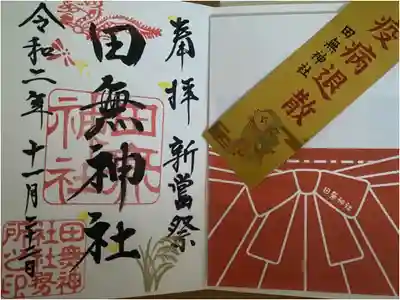 奉拝 新嘗祭
田無神社
令和二年 十一月二十三日
田無神社
田無神社社務所之印
疫病退散
田無神社
田無神社